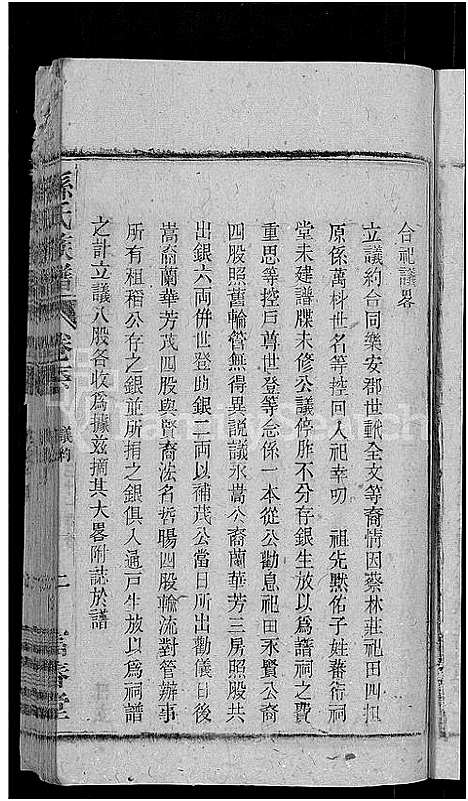 合祀議畧
立議約合同樂安郡世軏全文等裔情因蔡林莊祀田四担
原係萬科世名等控回入祀幸叨 祖先默佑子姓蕃衍祠
堂未建譜牒未修公議停胙不分存銀生放以爲譜祠之費
重思等控曰尊世登等念係一本從公勸息祀田永賢公裔
四股照舊輪管無得異説議永嵩公裔蘭華芳三房照股共
出銀六両併世登助銀二両以補茂公當日所出勸儀日後
嵩裔蘭華芳茂四股與賢裔法名哲暘四股輪流對管辦事
所有租稻公存之銀並所捐之銀俱入通戸生放以爲祠譜
之計立議八股各收爲據兹摘其大畧附誌於譜
孫氏族譜
議約
二